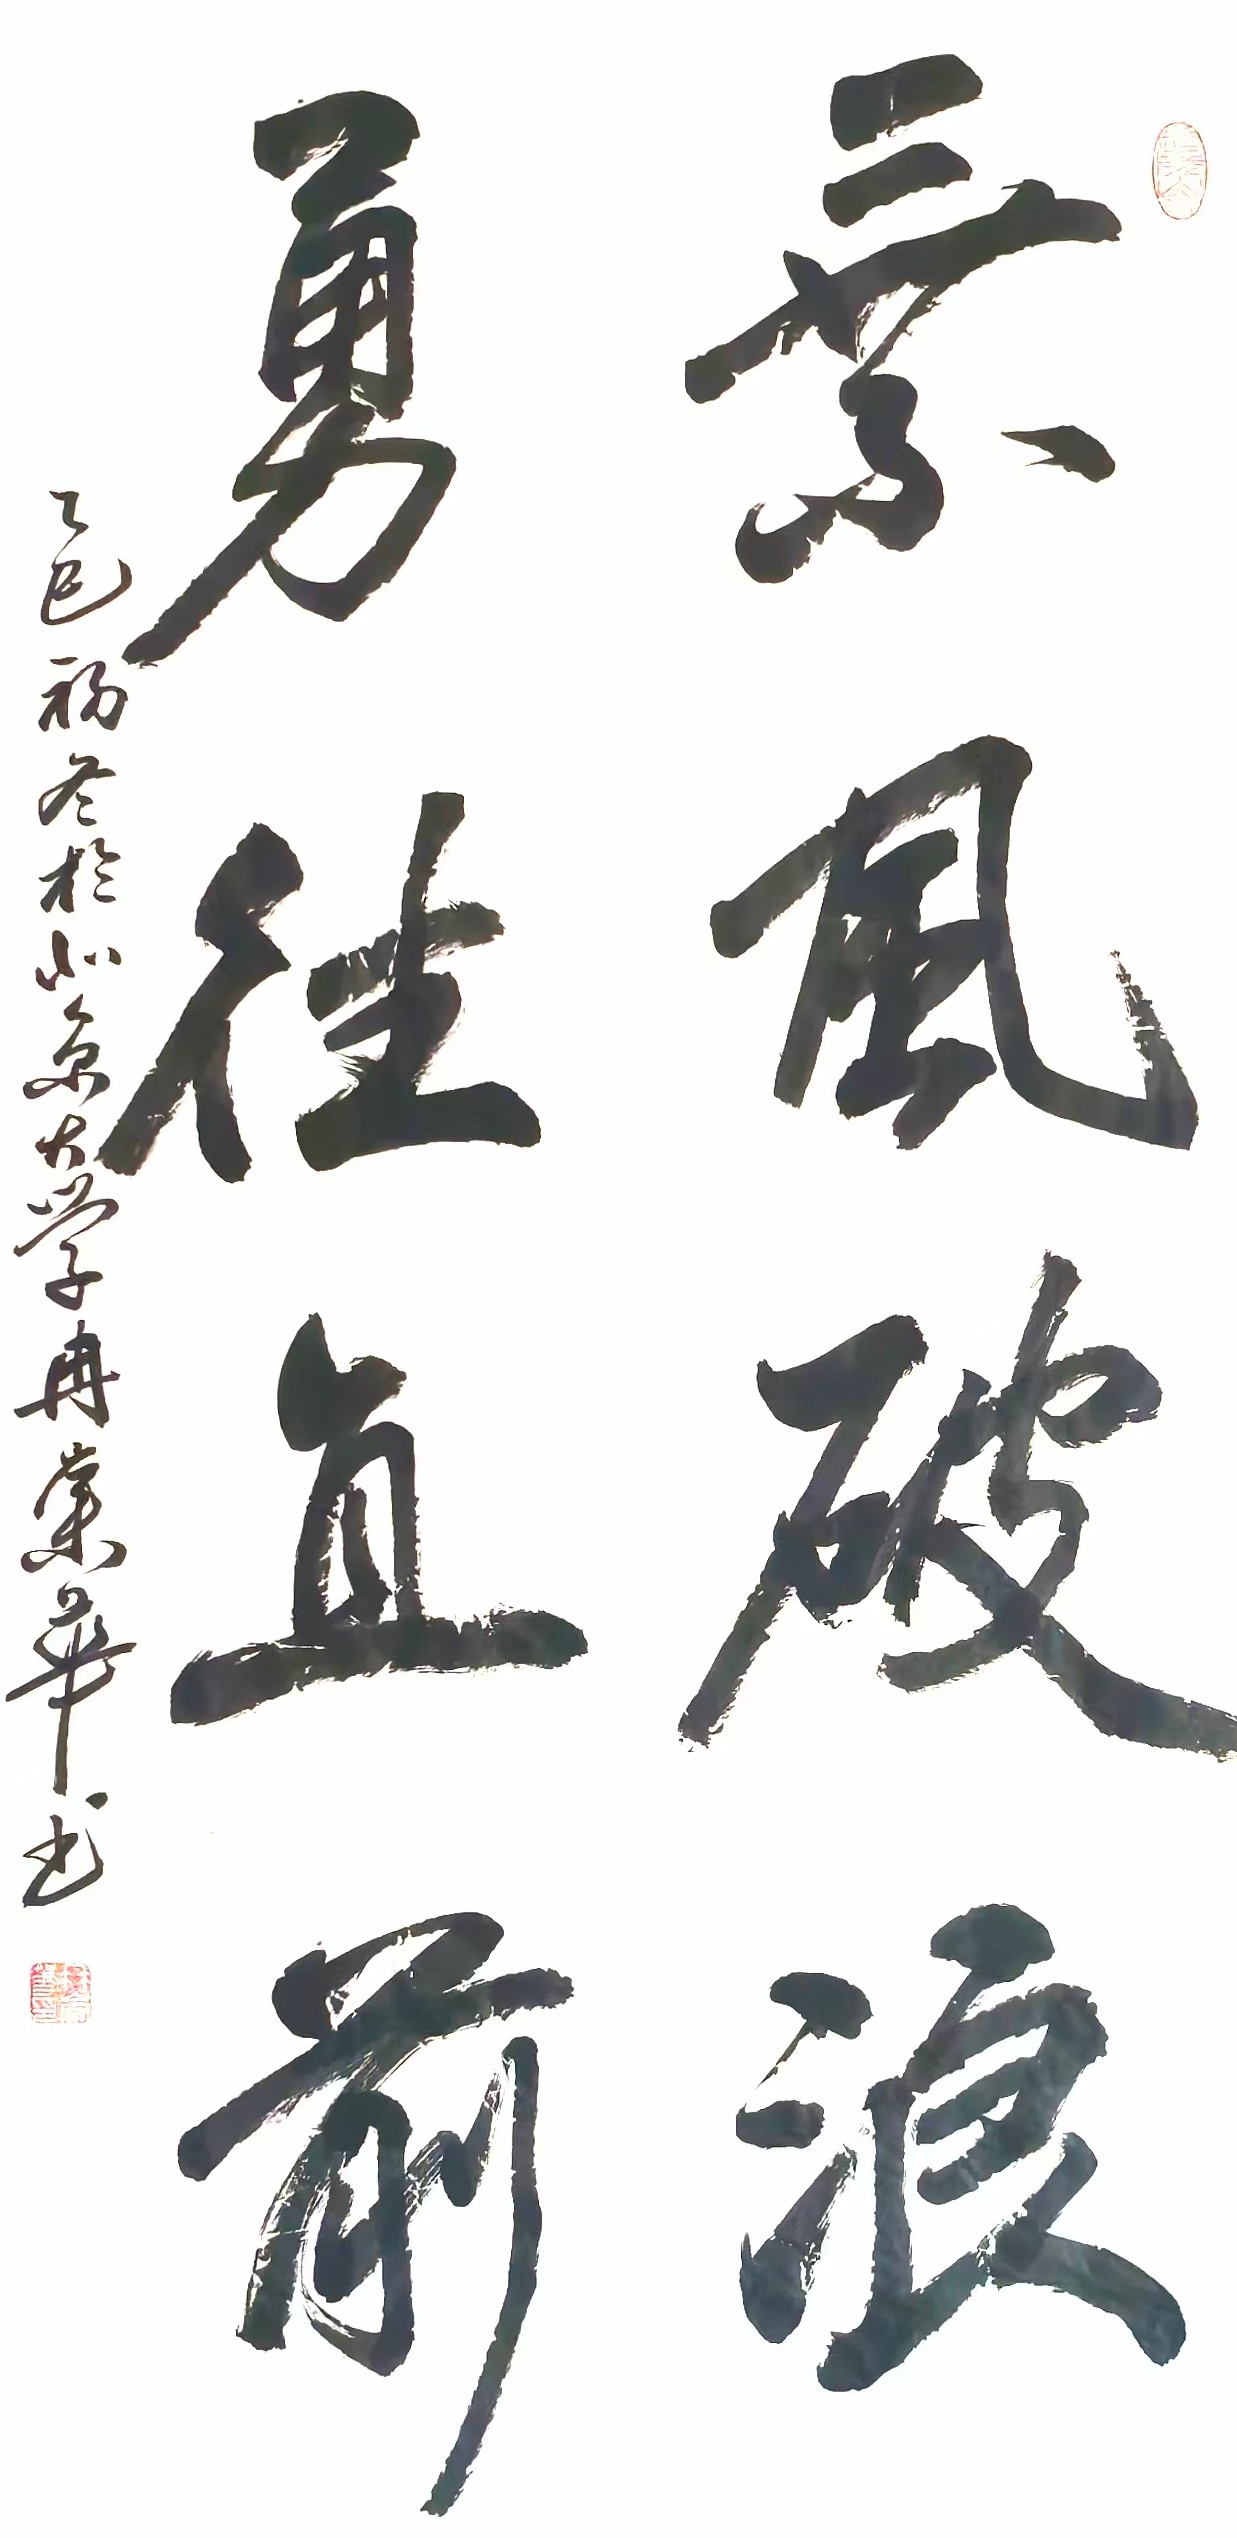 乘風破浪
勇往直前
乙巳初冬於北京大学冉華书